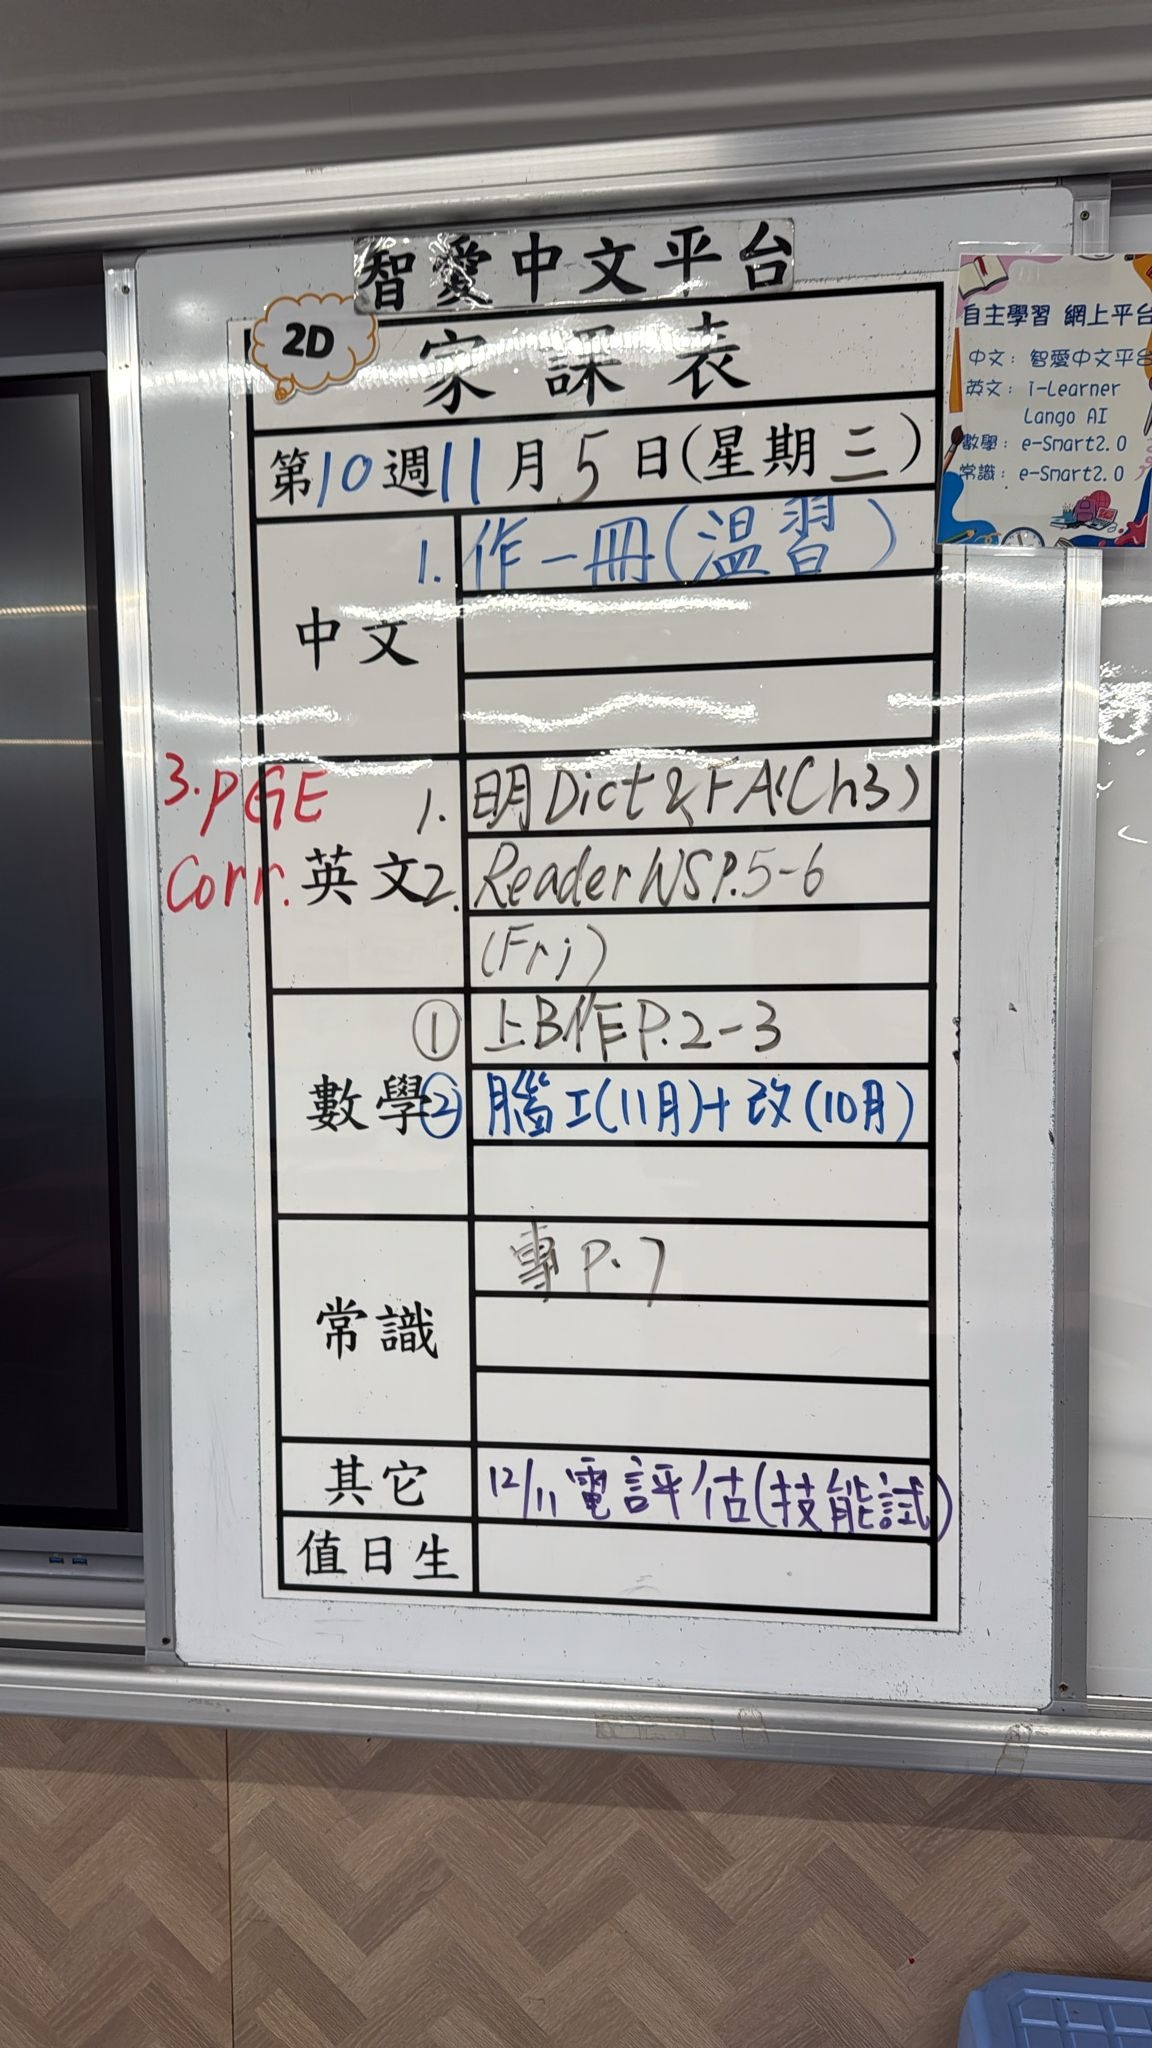 智愛中文平台
2D
家課表
第10週11月5日(星期三)
中文
1. 作一冊(溫習)
英文
1. 明Dict & FA(Ch3)
2. Reader WS P.5-6
(Fri)
3. PGE
Corr.
數學
① 上B作P.2-3
② 腦工(11月)+改(10月)
常識
專P.7
其它
12/11電評估(技能試)
值日生
自主學習 網上平台
中文: 智愛中文平台
英文: i-Learner
Lango AI
數學: e-Smart2.0
常識: e-Smart2.0